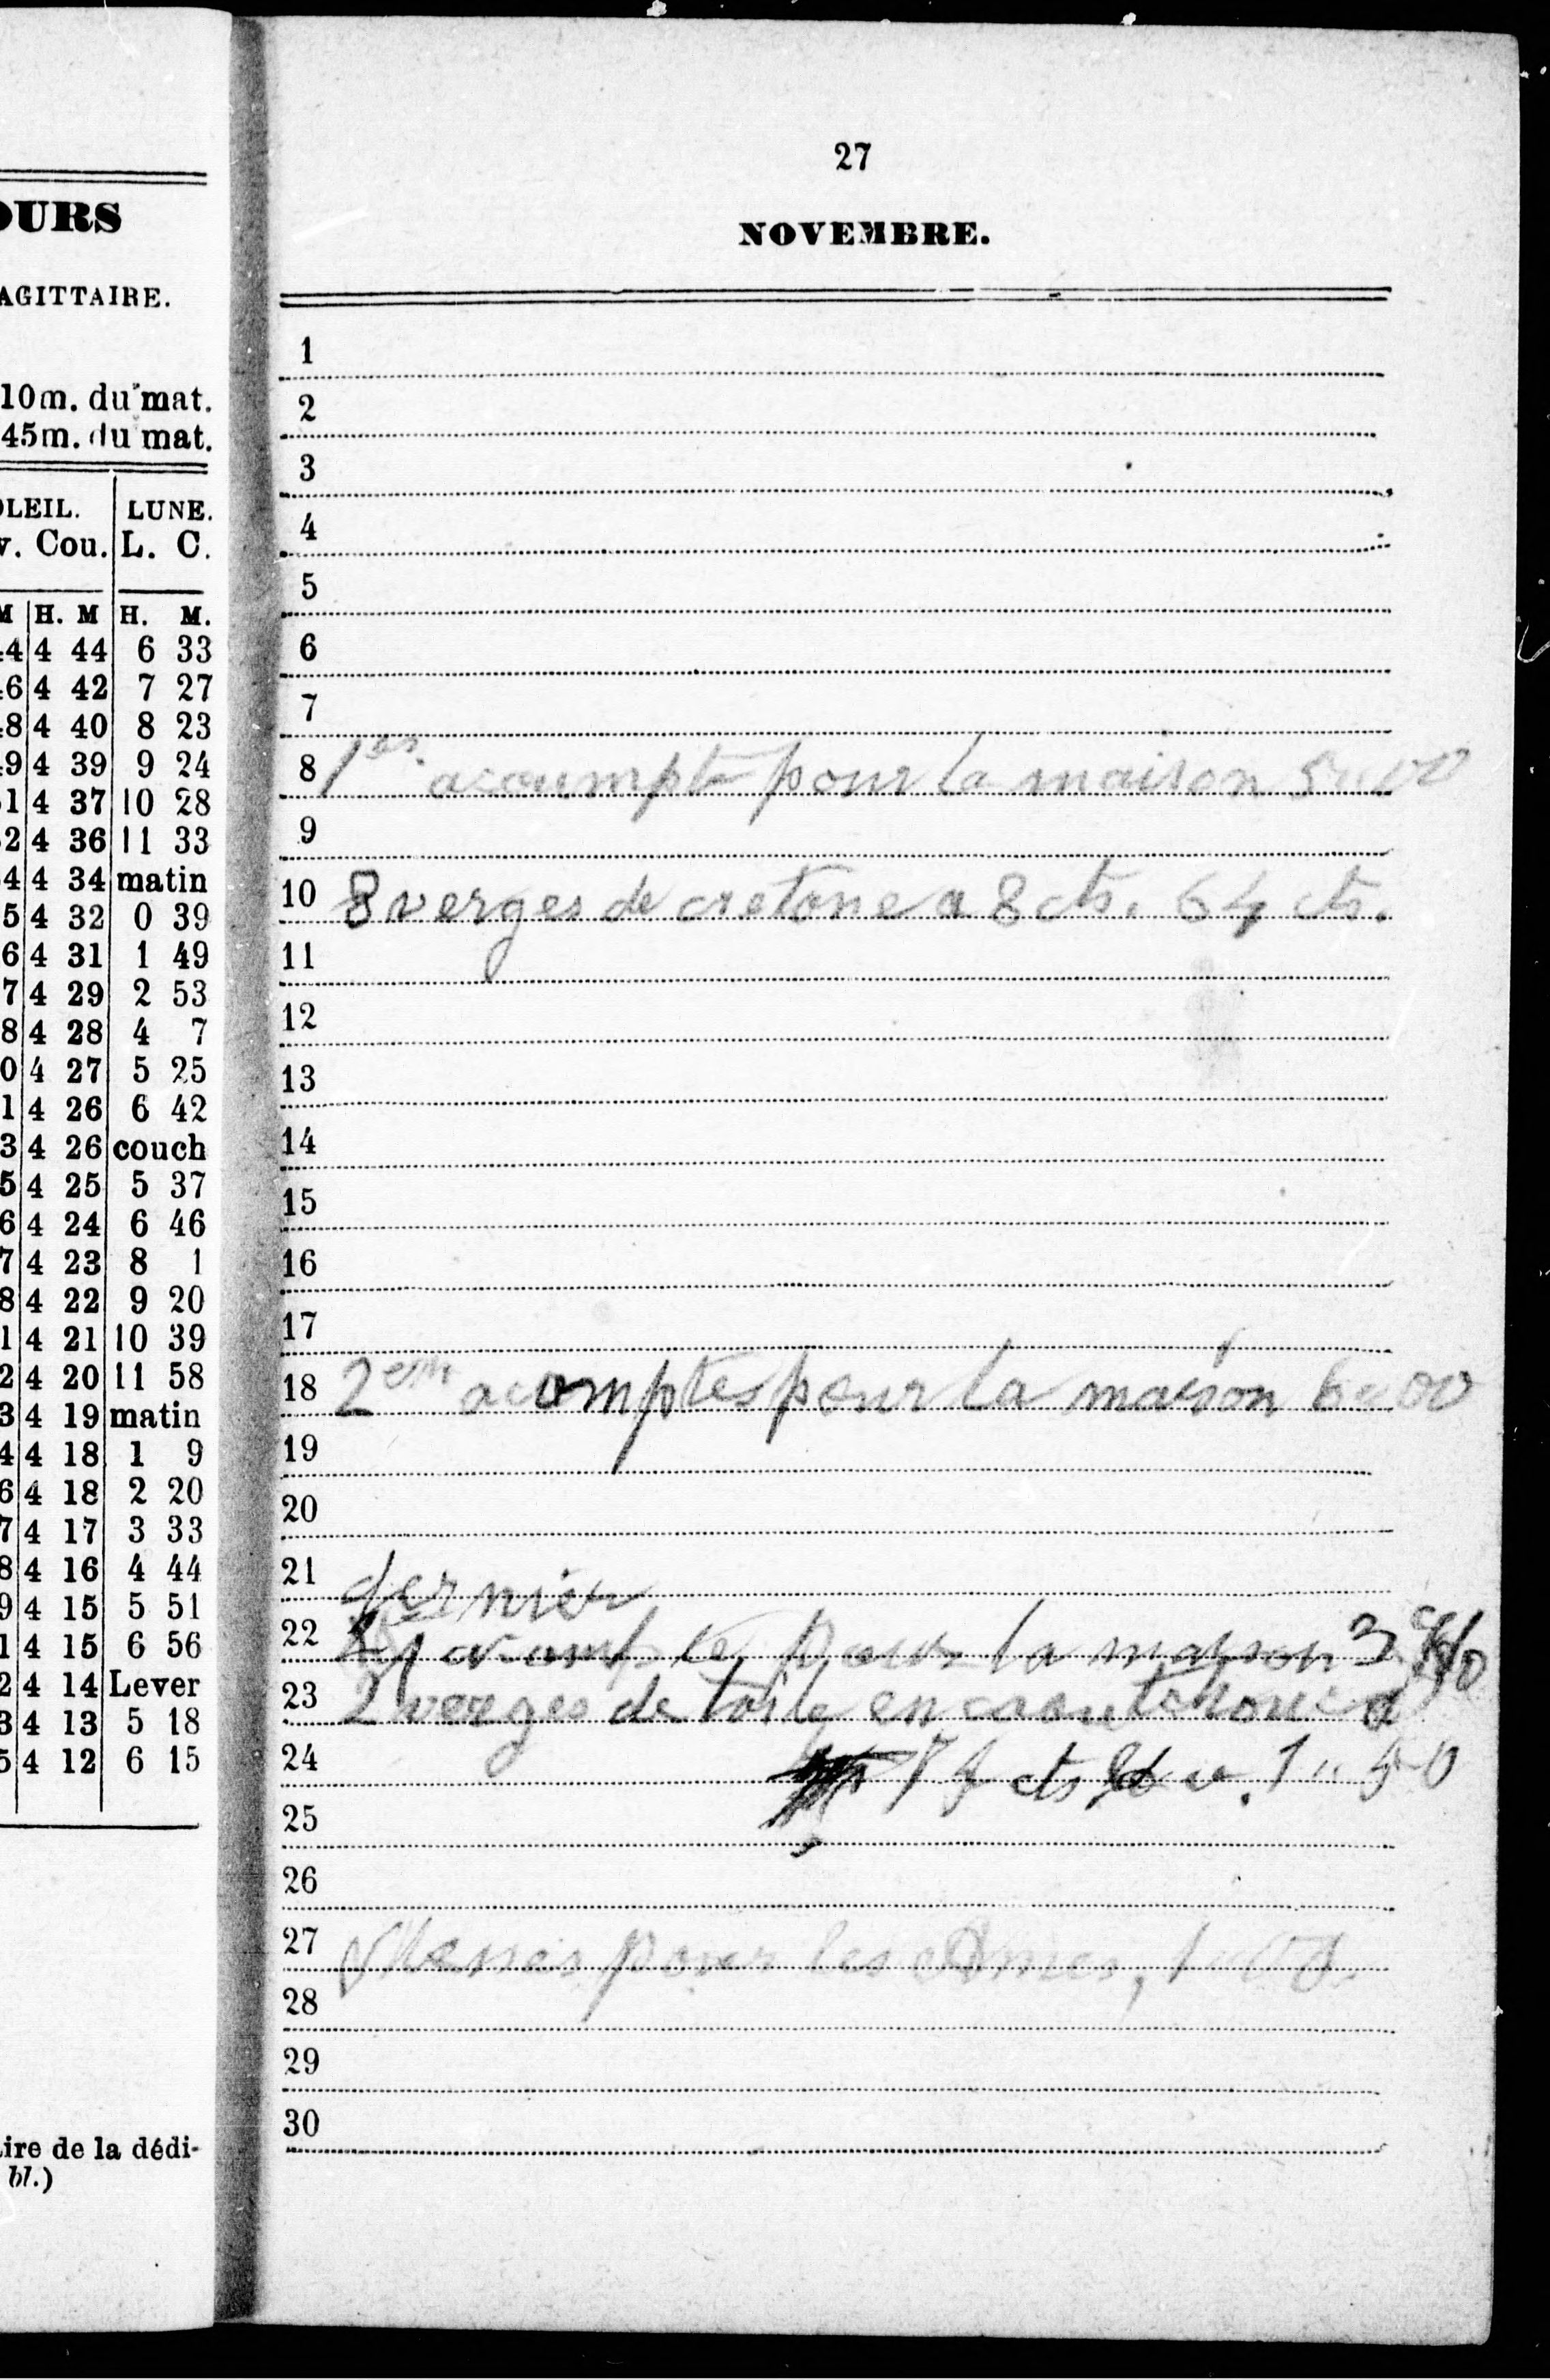 OURS
AGITTAIRE.
10m. du mat.
45m. du mat.
OLEIL. LUNE.
v. Cou. L. C.
M H. M H. M.
44 4 44 6 33
46 4 42 7 27
48 4 40 8 23
49 4 39 9 24
51 4 37 10 28
2 4 36 11 33
4 4 34 matin
5 4 32 0 39
6 4 31 1 49
7 4 29 2 53
8 4 28 4 7
0 4 27 5 25
1 4 26 6 42
3 4 26 couch
5 4 25 5 37
6 4 24 6 46
7 4 23 8 1
8 4 22 9 20
1 4 21 10 39
2 4 20 11 58
3 4 19 matin
4 4 18 1 9
6 4 18 2 20
7 4 17 3 33
8 4 16 4 44
9 4 15 5 51
1 4 15 6 56
2 4 14 Lever
3 4 13 5 18
5 4 12 6 15
ire de la dédi-
bl.)
27
NOVEMBRE.
1
2
3
4
5
6
7
8 1er acoumpte pour la maison 5 " 00
9
10 8 verges de cretone a 8 cts. 64 cts.
11
12
13
14
15
16
17
18 2em acomptes pour la maison 6 " 00
19
20
21 dernier
22 acompte pour la maison 3
23 2 verges de toile en caoutchouc a
24 cts v. 1 " 50
25
26
27 Messes pour les Ames, 1 "
28
29
30